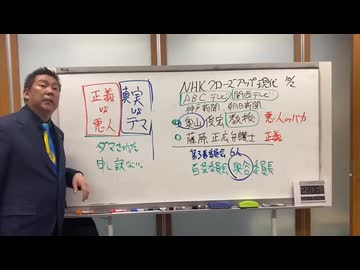 正義
vs
悪人
真実
vs
デマ
ダマされた
申し訳ない
NHKクローズアップ現代
ABCテレビ 関西テレビ
神戸新聞 朝日新聞
教授 悪人のバカ
藤原正広弁護士 正義
第3者委員会 6人
百条委員会 奥谷委員長